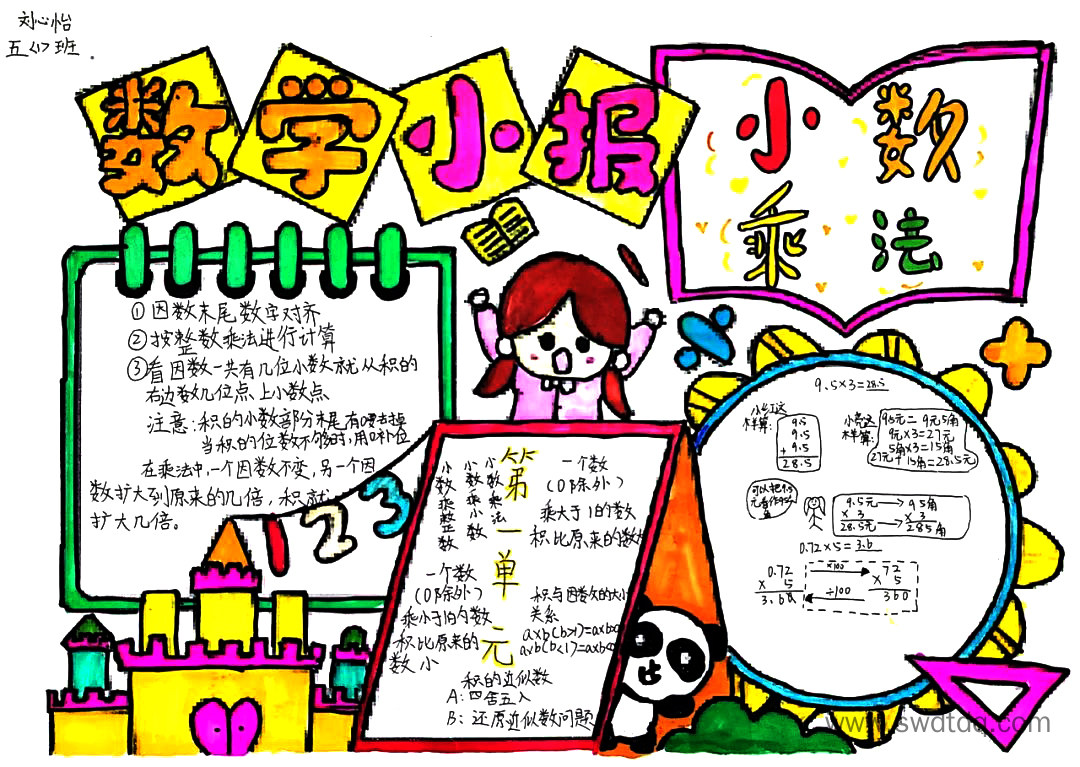 刘心怡
五<1>班.
数学小报
小数
乘法
①因数末尾数字对齐
②按整数乘法进行计算
③看因数一共有几位小数就从积的
右边数几位点上小数点
注意:积的小数部分末尾有0要去掉
当积的位数不够时,用0补位
在乘法中,一个因数不变,另一个因
数扩大到原来的几倍,积就
扩大几倍。
1 2 3
第一单元
小数乘整数
小数乘小数
小数乘法
一个数
(0除外)
乘大于1的数
积比原来的数大
一个数
(0除外)
乘小于1的数
积比原来的
数小
积与因数的大小
关系
a×b(b>1)=a×b>a
a×b(b<1)=a×b<a
积的近似数
A:四舍五入
B:还原近似数问题
9.5×3=28.5
小红这
样算:
9.5
9.5
+9.5
28.5
小亮这
样算:
9.5元=9元5角
9元×3=27元
5角×3=15角
27元+15角=28.5元
可以把9.5
元看作95
角
9.5元→95角
×3 ×3
28.5元→285角
0.72×5=3.6
0.72 ×100 72
×5 ×5
3.60 ÷100 360
www.swdtdq.com